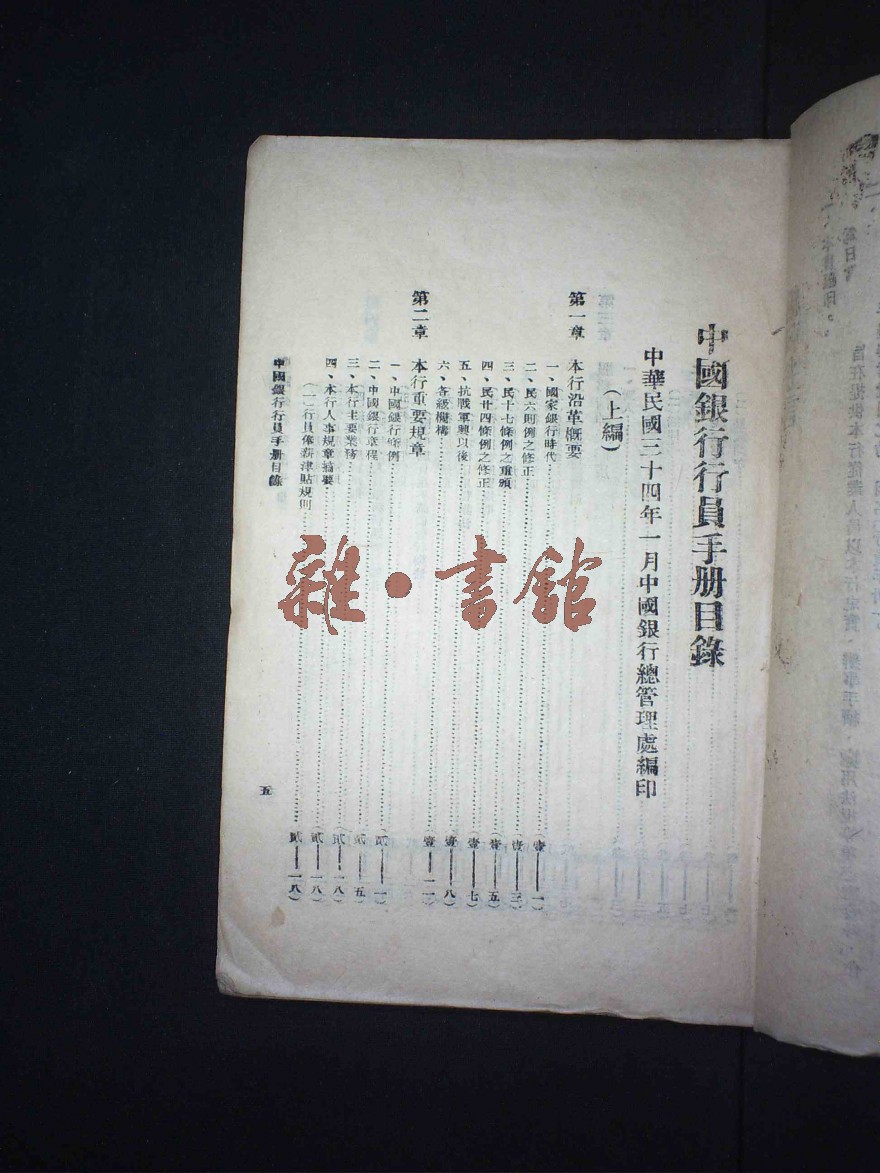 中國銀行行員手册目錄
中華民國三十四年一月中國銀行總管理處編印
（上編）
第一章　本行沿革概要
一、國家銀行時代……（壹——一）
二、民六則例之修正……（壹——三）
三、民十七條例之重頒……（壹——五）
四、民廿四條例之修正……（壹——七）
五、抗戰軍興以後……（壹——八）
六、各級機構……（壹——一一）
第二章　本行重要規章
一、中國銀行條例……（貳——一）
二、中國銀行章程……（貳——五）
三、本行主要業務……（貳——八）
四、本行人事規章摘要……（貳——一八）
（一）行員俸薪津貼規則……貳——一八）
中國銀行行員手册目錄
五
雜·書館